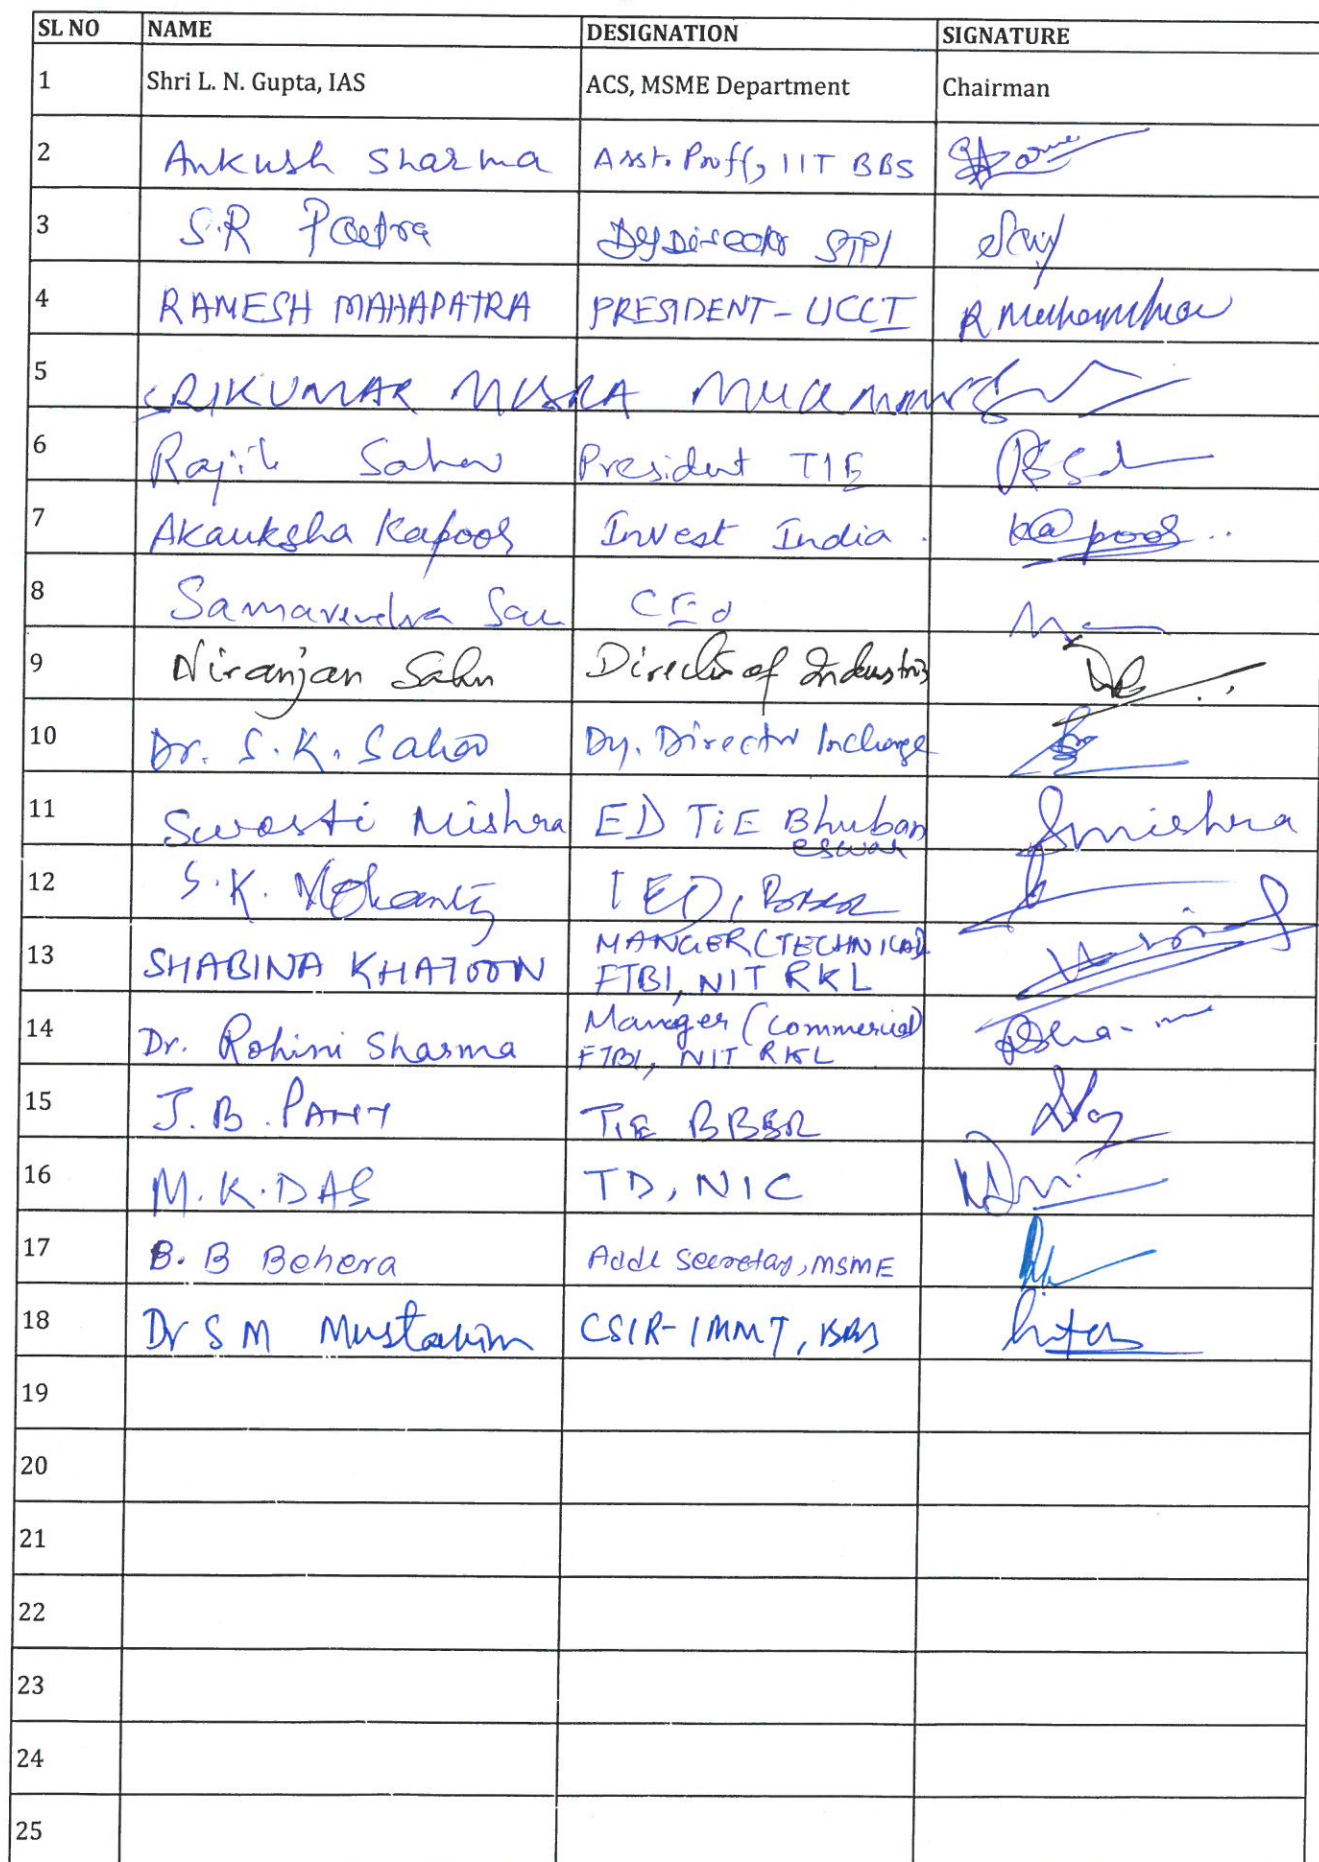 SL NO NAME DESIGNATION SIGNATURE
1 Shri L. N. Gupta, IAS ACS, MSME Department Chairman
2 Ankush Sharma Asst. Proff, IIT BBS
3 S.R Patra Dy Director STPI
4 RAMESH MAHAPATRA PRESIDENT - UCCI R Mahapatra
5 SRIKUMAR MISRA
6 Rajib Sahoo President TIE
7 Akanksha Kapoor Invest India. Kapoor..
8 Samarendra Sahu CEO
9 Niranjan Sahu Director of Industries
10 Dr. S.K. Sahoo Dy. Director Incharge
11 Swosti Mishra ED TiE Bhuban Smishra
eswar
12 S.K. Mohanty IED, BBSR
13 SHABINA KHATOON MANGER (TECHNICAL)
FTBI, NIT RKL
14 Dr. Rohini Sharma Manager (Commercial)
FTBI, NIT RKL
15 J.B. PANY TiE BBSR
16 M.K. DAS TD, NIC
17 B. B Behera Addl Secretary, MSME
18 Dr S M Mustakim CSIR-IMMT, BBS
19
20
21
22
23
24
25